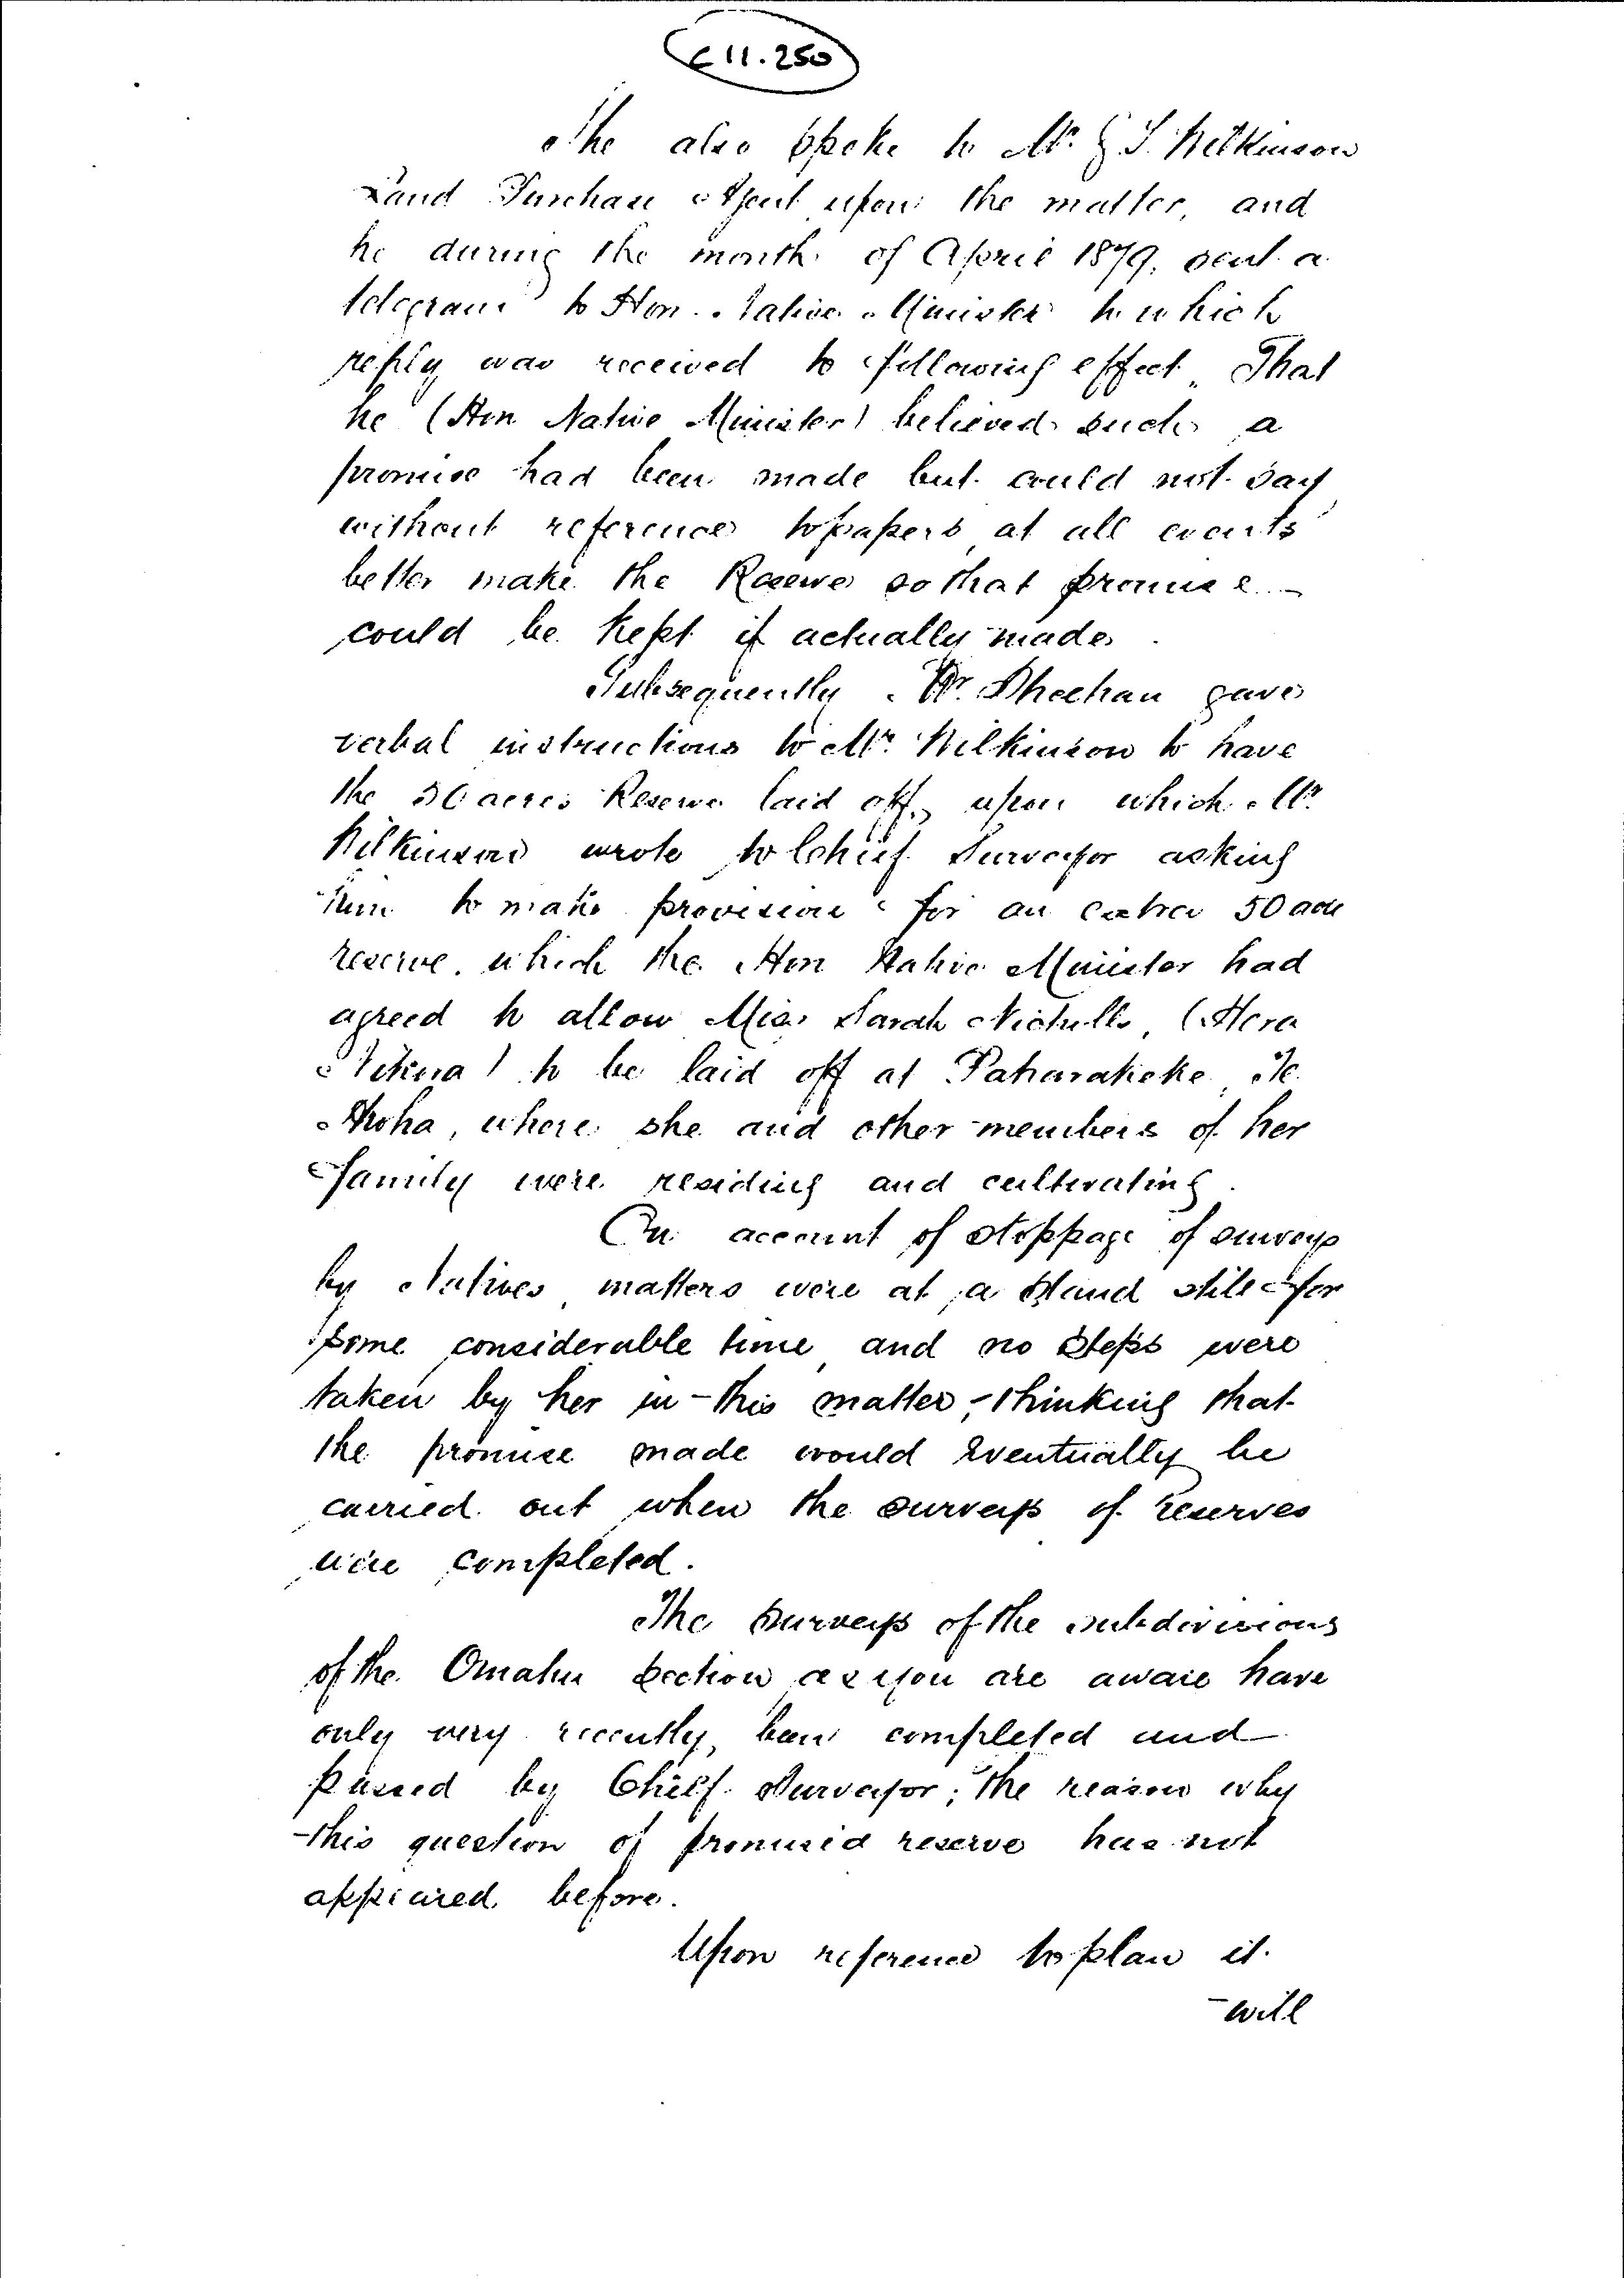 C 11.250
She also spoke to Mr. G. T. Wilkinson
Land Purchase Agent upon the matter, and
he during the month of April 1879, sent a
telegram to Hon. Native Minister to which
reply was received to following effect "That
he (Hon Native Minister) believed such a
promise had been made but could not say
without reference to papers, at all events
better make the Reserve so that promise
could be kept if actually made
Subsequently Mr. Sheehan gave
verbal instructions to Mr. Wilkinson to have
the 50 acres Reserve laid off, upon which Mr.
Wilkinson wrote to Chief Surveyor asking
him to make provision for an extra 50 acre
reserve which the Hon Native Minister had
agreed to allow Miss Sarah Nicholls, (Hera
Nikora) to be laid off at Paharakeke, Te
Aroha, where she and other members of her
family were residing and cultivating.
On account of stoppage of surveys
by Natives, matters were at a stand still for
some considerable time, and no steps were
taken by her in this matter, thinking that
the promise made would eventually be
carried out when the surveys of reserves
were completed.
The surveys of the subdivisions
of the Omahu section as you are aware have
only very recently, been completed and
passed by Chief Surveyor; the reason why
this question of promised reserve has not
appeared before.
Upon reference to plan it
will